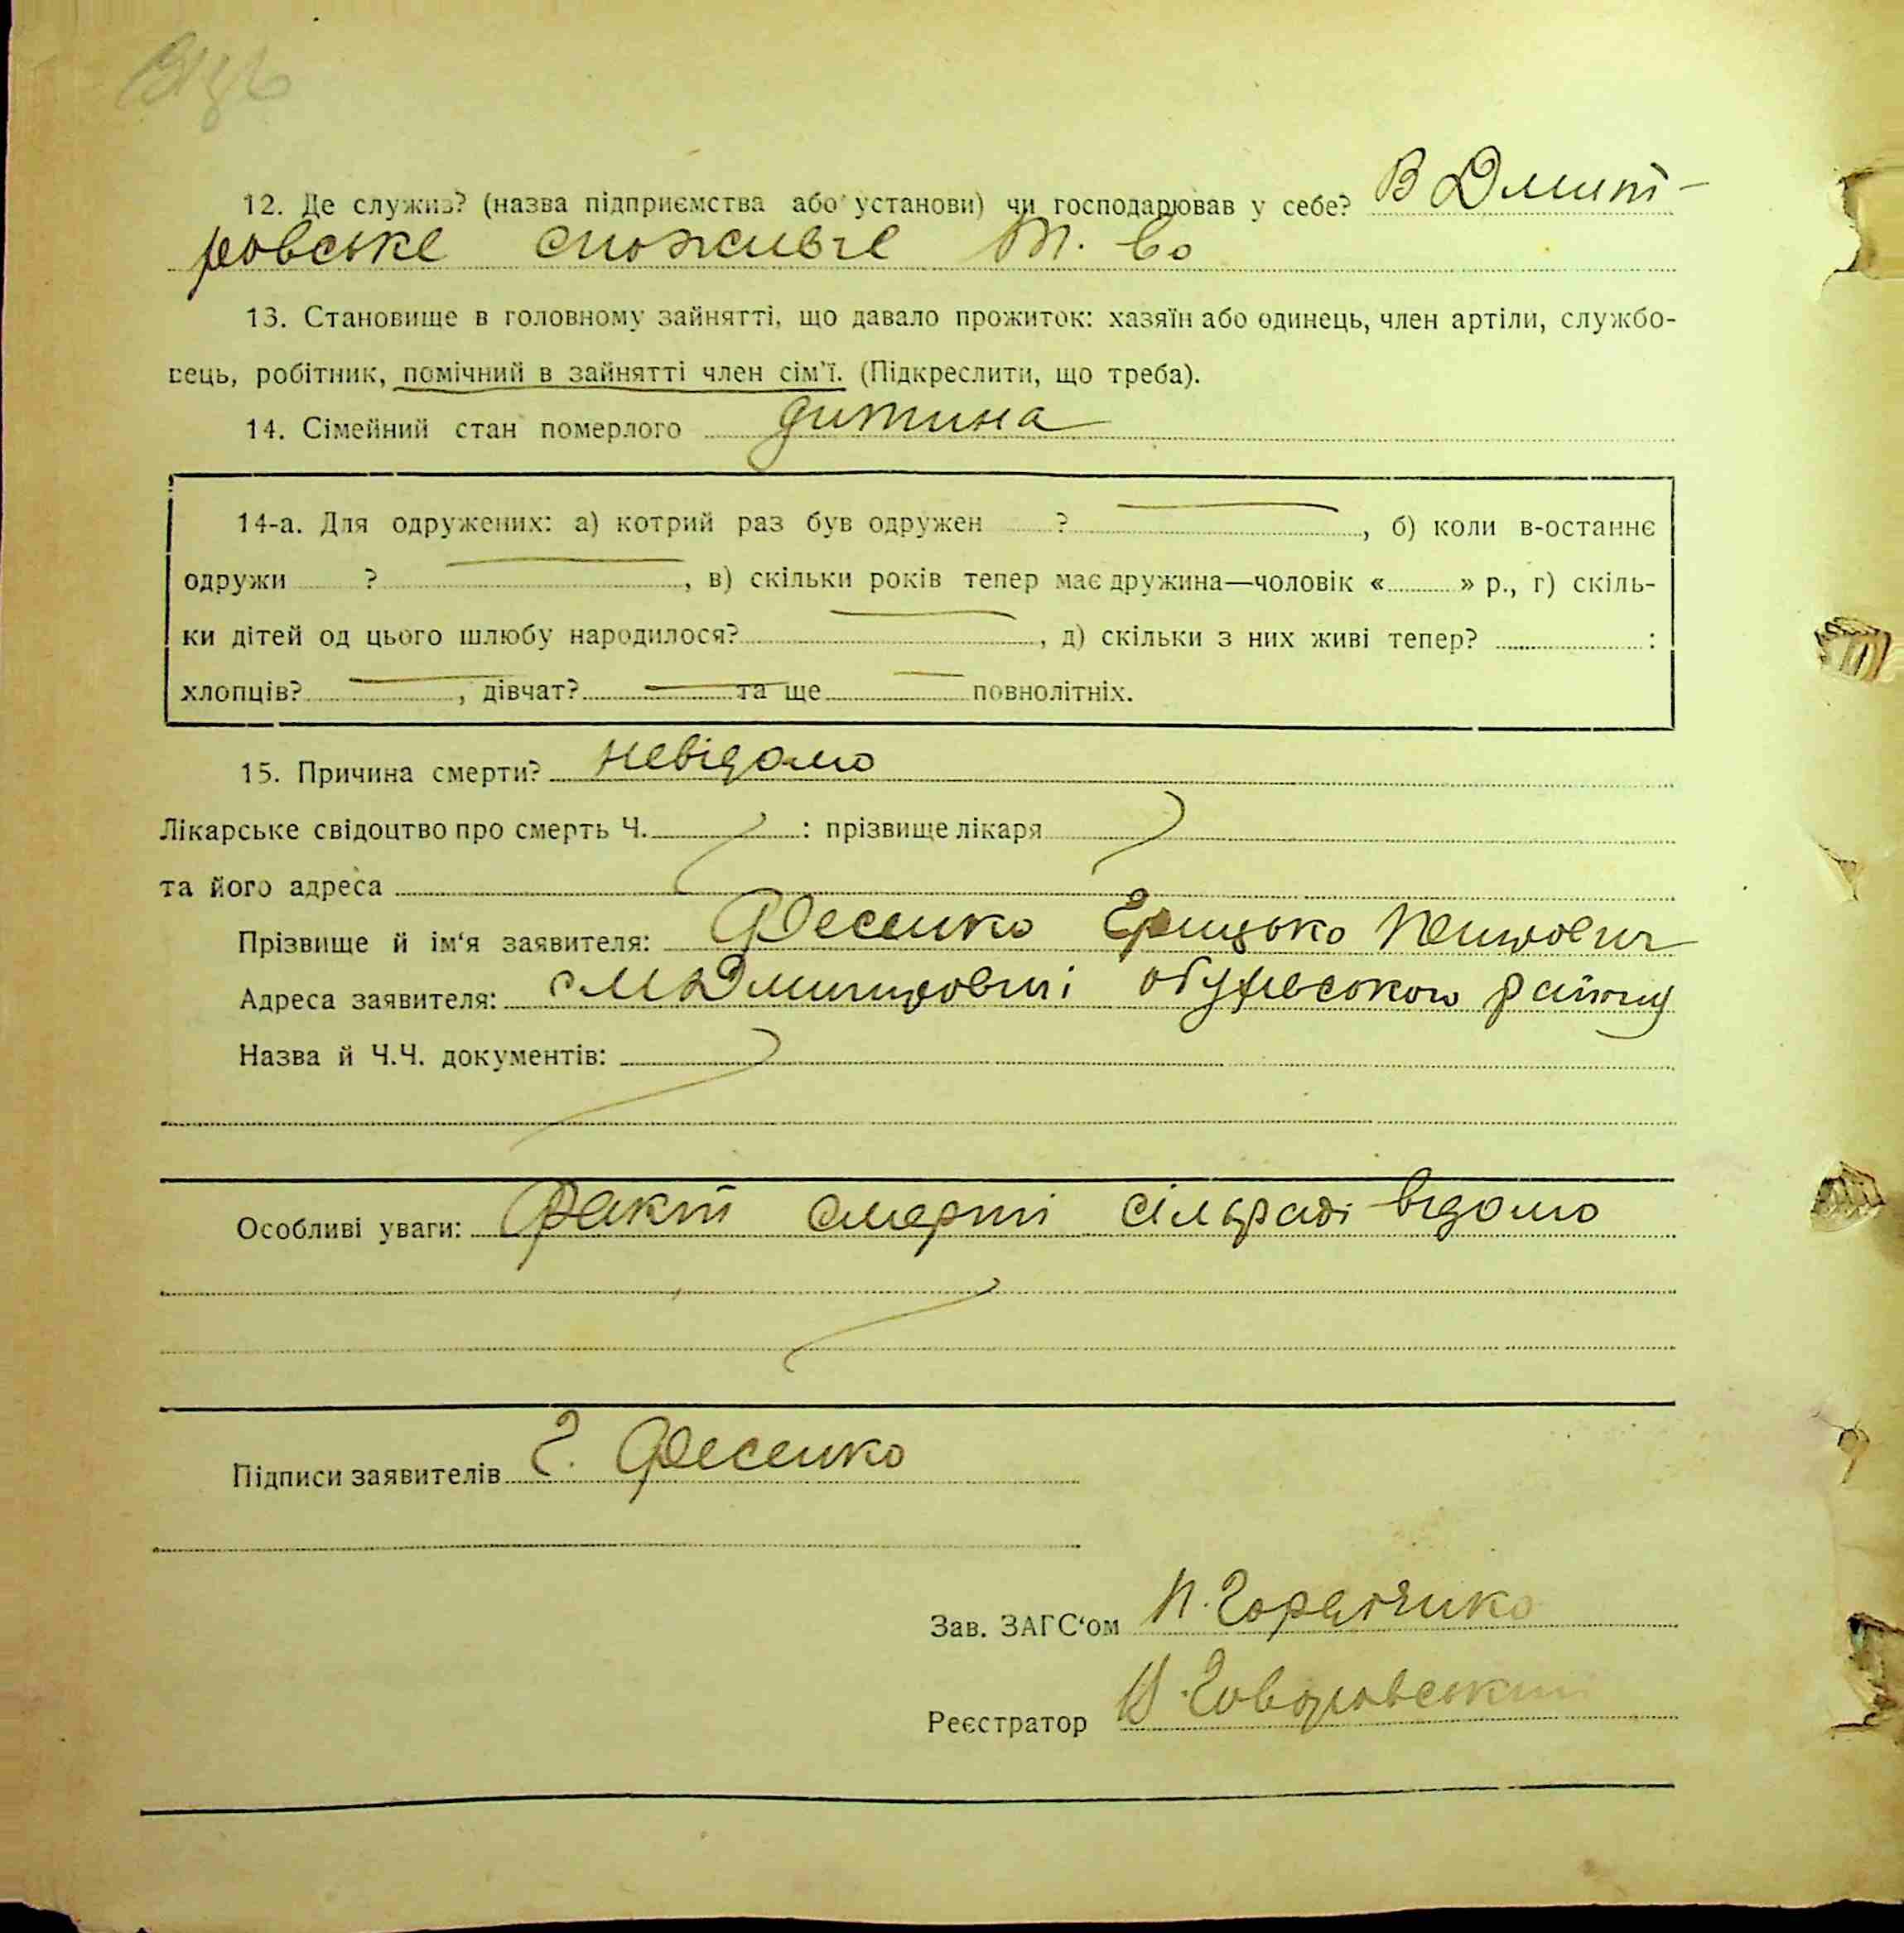 12. Де служив? (назва підприємства або установи) чи господарював у себе? В Дмит-
ровське споживче т. во
13. Становище в головному зайнятті, що давало прожиток: хазяїн або одинець, член артіли, службо-
вець, робітник, помічний в зайнятті член сім'ї. (Підкреслити, що треба).
14. Сімейний стан померлого дитина
14-а. Для одружених: а) котрий раз був одружен ? , б) коли в-останнє
одружи ? , в) скільки років тепер має дружина—чоловік « » р., г) скіль-
ки дітей од цього шлюбу народилося? , д) скільки з них живі тепер? :
хлопців? , дівчат? та ще повнолітніх.
15. Причина смерти? невідомо
Лікарське свідоцтво про смерть Ч. : прізвище лікаря
та його адреса
Прізвище й ім'я заявителя: Фесенко Грицько
Адреса заявителя: с М Дмитровичі обухівського району
Назва й Ч.Ч. документів:
Особливі уваги: Факт смерті сільраді відомо
Підписи заявителів Г. Фесенко
Зав. ЗАГС'ом
Реєстратор